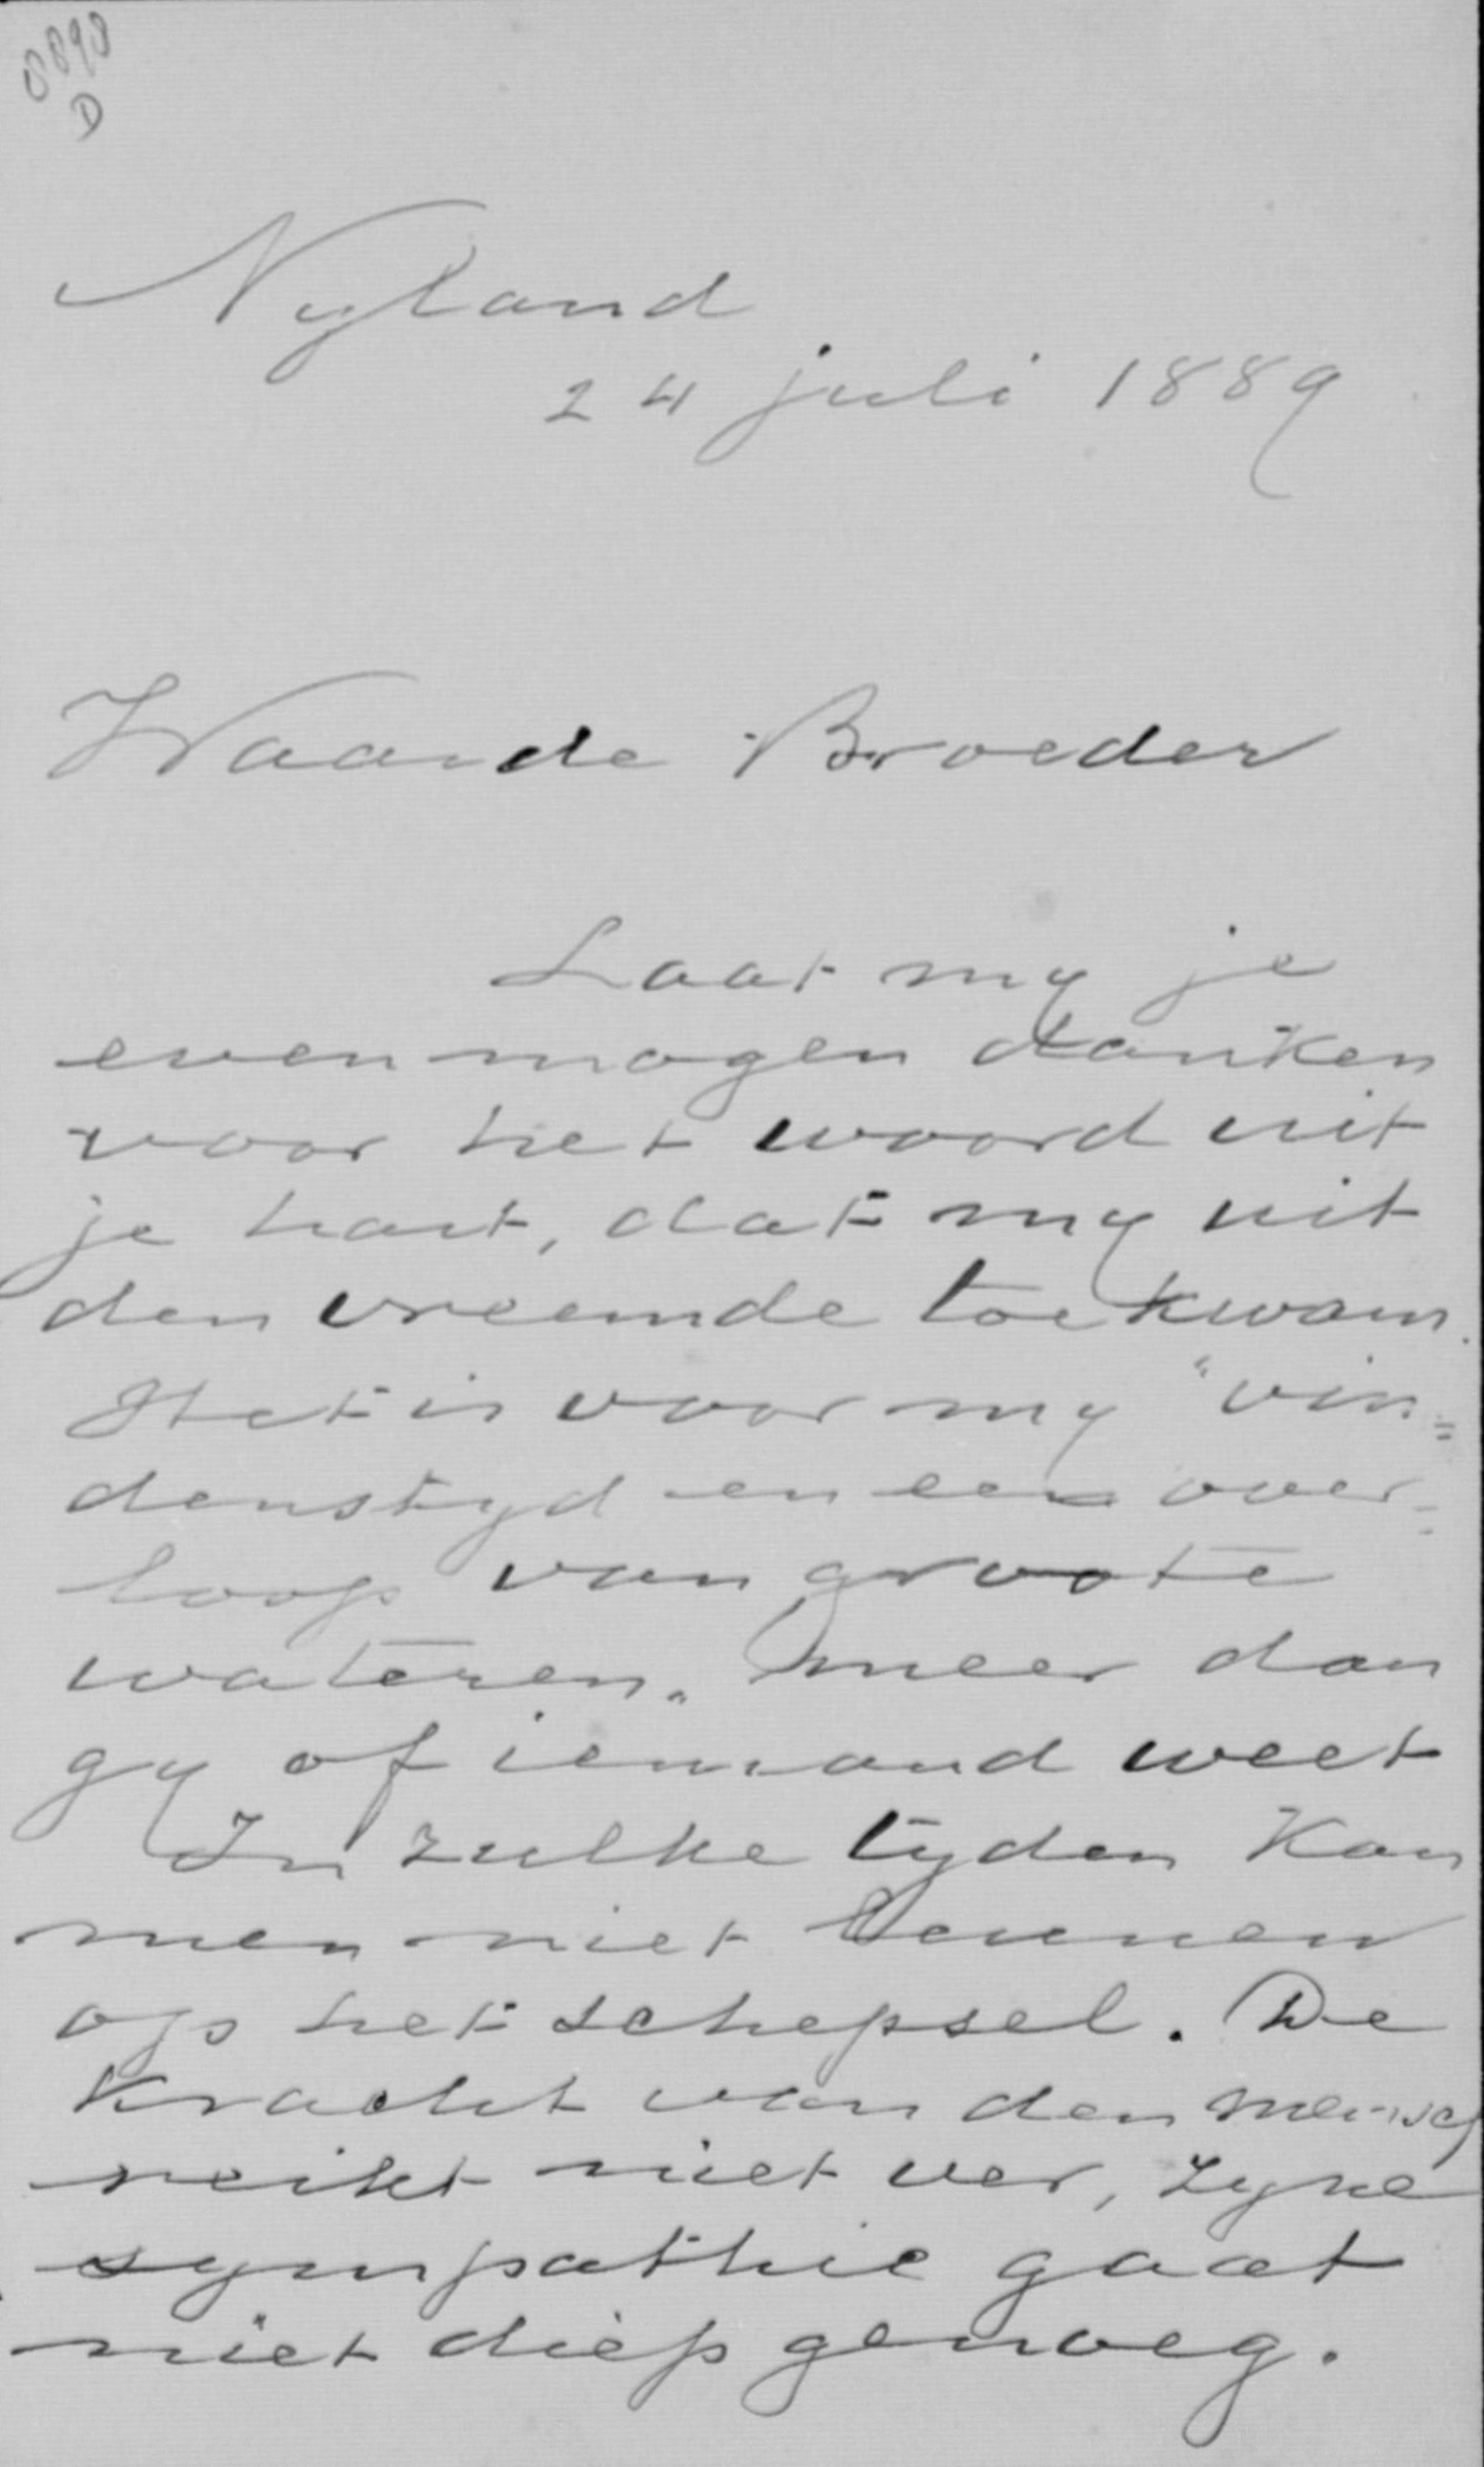 8898
D
Nyland
24 juli 1889
Waarde Broeder
Laat my je
even mogen danken
voor het woord uit
je hart, dat my uit
den vreemde toekwam.
Het is voor my "vin=
denstyd en een over=
loop van groote
wateren" meer dan
gy of iemand weet
In zulke tyden kan
men niet leunen
op het schepsel. De
kracht van den mensch
reikt niet ver, zyne
sympathie gaat
niet diep genoeg.